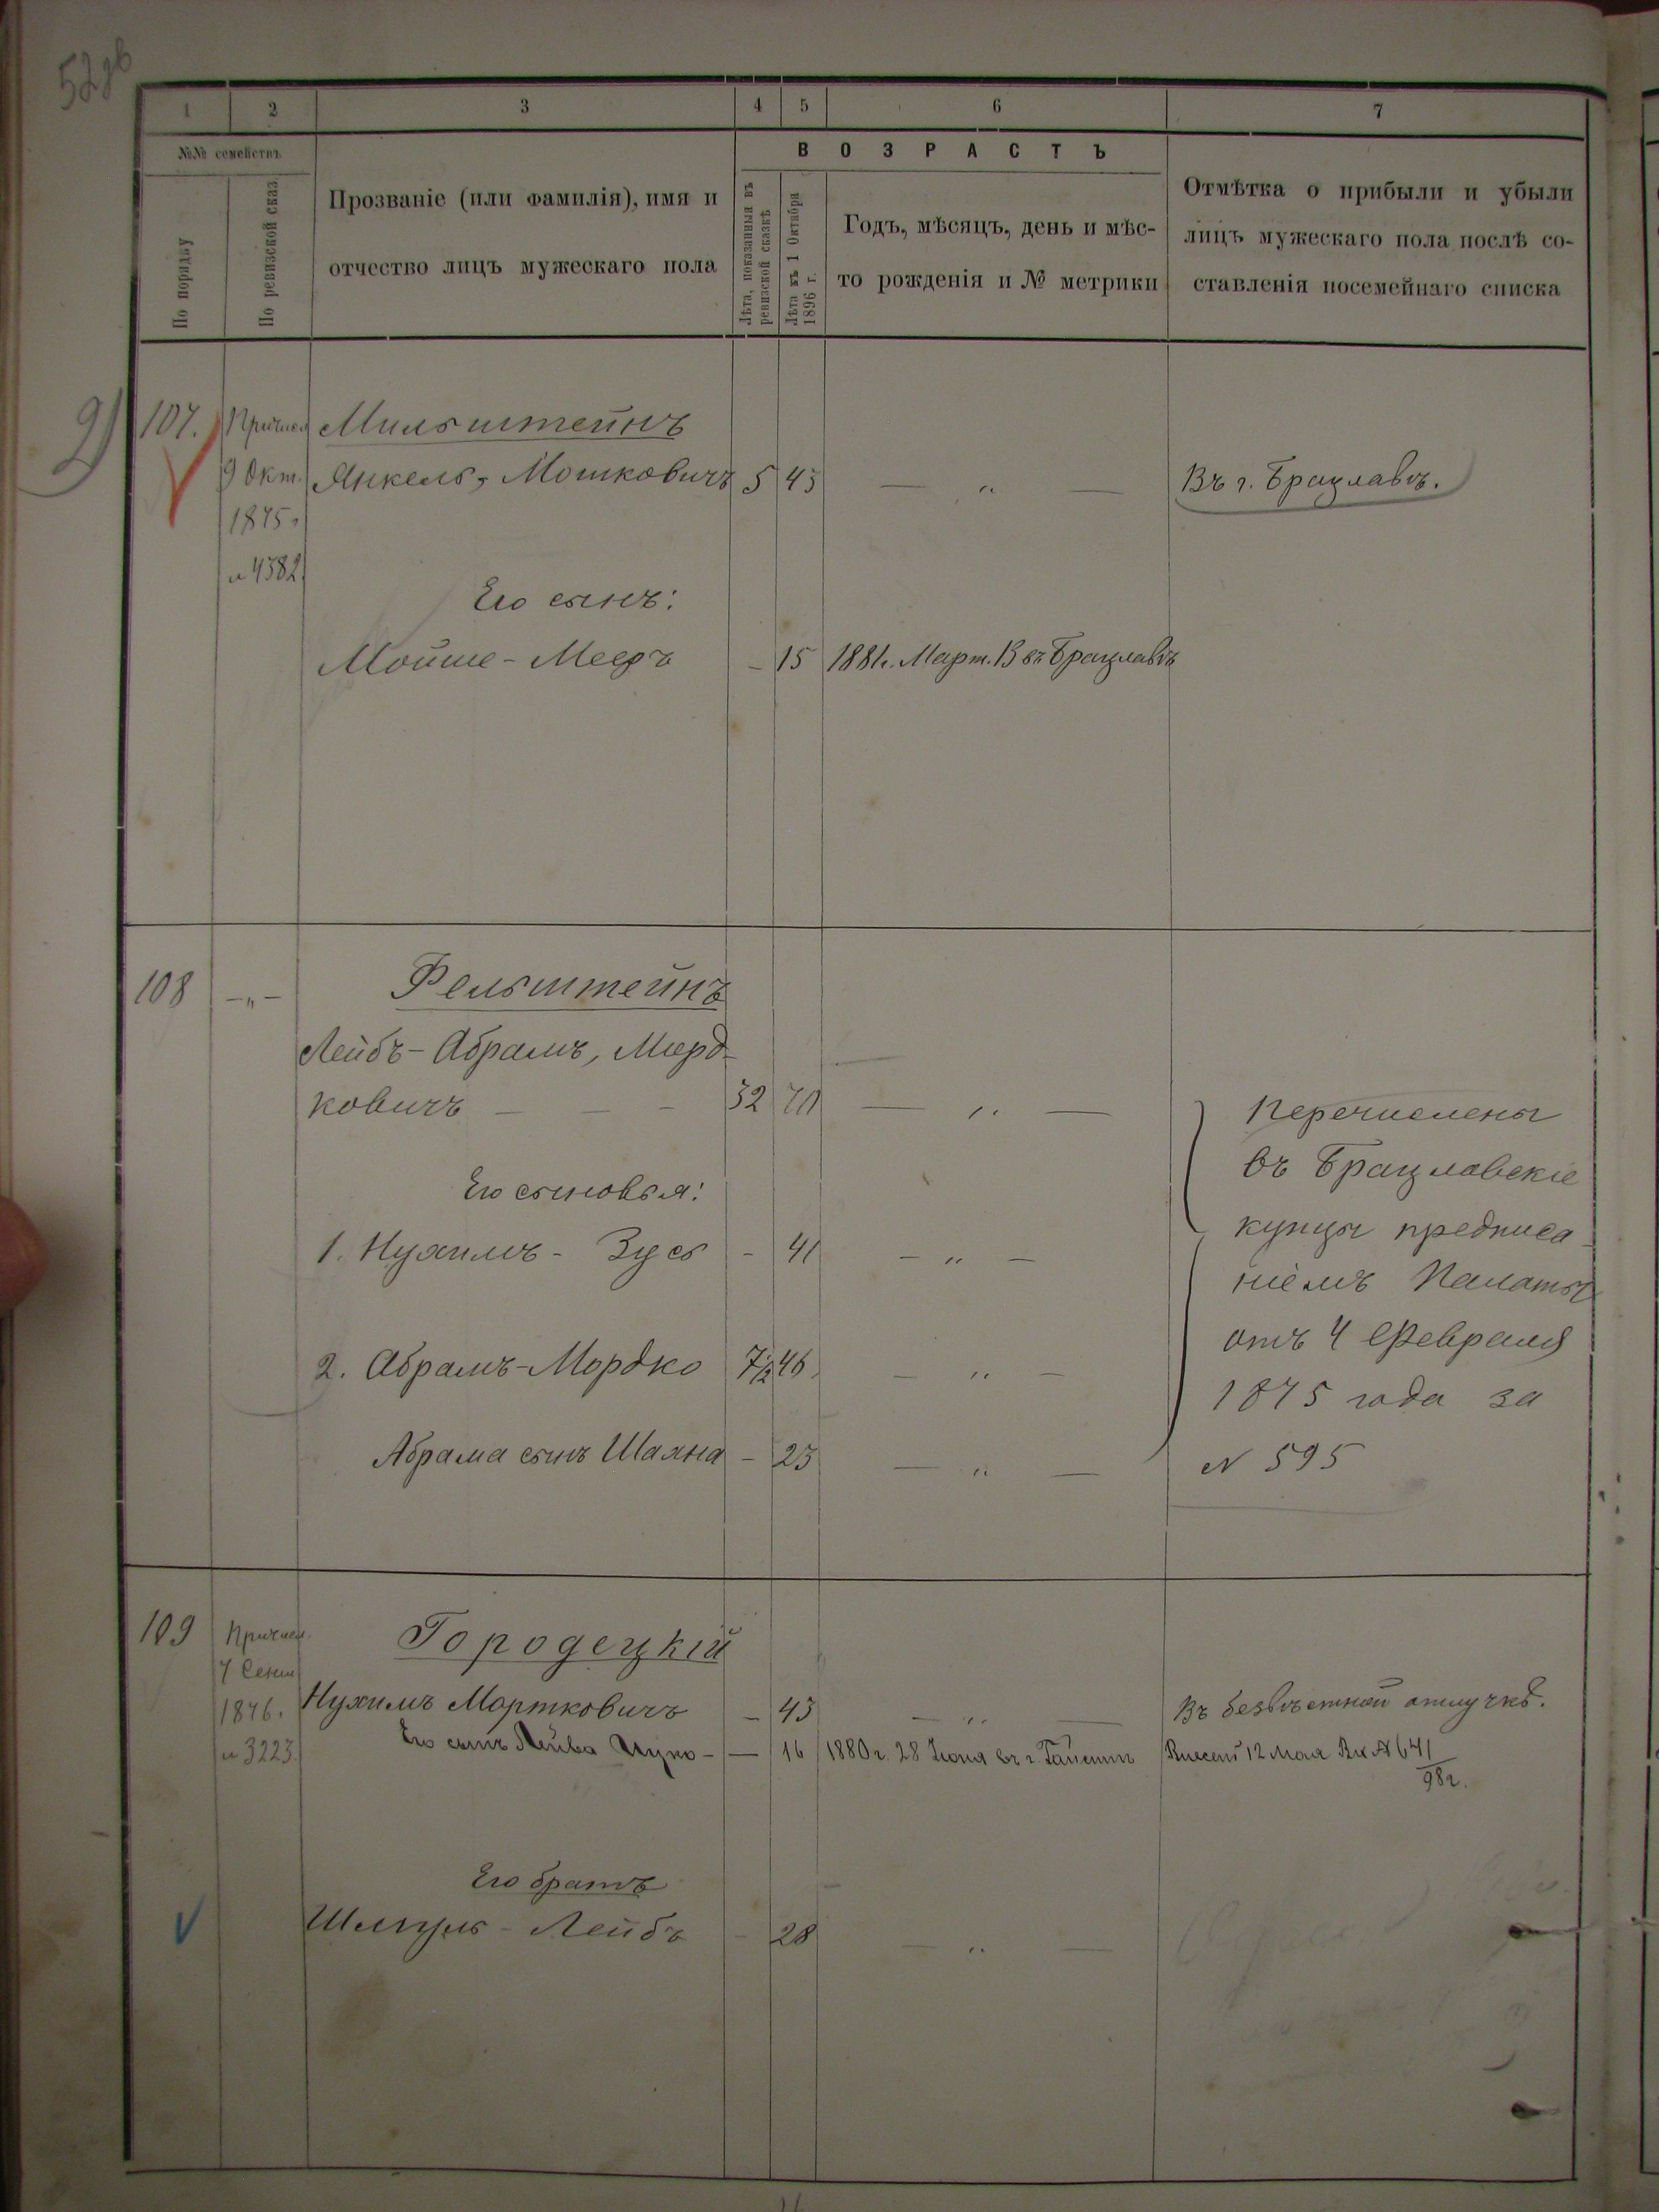 52об
1 2 3 4 5 6 7
№№ семействъ
По порядку
По ревизской сказ
Прозваніе (или фамилія), имя и
отчество лицъ мужескаго пола
ВОЗРАСТЪ
Лѣта, показанныя въ
ревизской сказкѣ
Лѣта къ 1 Октября
1896 г.
Годъ, мѣсяцъ, день и мѣс-
то рожденія и № метрики
Отмѣтка о прибыли и убыли
лицъ мужескаго пола послѣ со-
ставленія посемейнаго списка
107. Причисл Мильштейнъ
9 Окт. Янкель, Мошковичъ 5 43 — „ — Въ г. Брацлавѣ.
1875.
№ 4382
Его сынъ:
Мойше-Мееръ - 15 1881г. Март. 13 въ Брацлавѣ
108 -„- Фельштейнъ
Лейбъ-Абрамъ, Морд-
ковичъ — — - 32 70 — „ — Перечислены
въ Брацлавскіе
Его сыновья:
купцы предписа-
1. Нухимъ- Зусь - 41 - „ -
ніемъ Палаты
отъ 4 Февраля
2. Абрамъ-Мордко 7/12 46 - „ -
1875 года за
Абрама сынъ Шаяна - 23 — „ — № 595
109 Причисл. Городецкій
7 Сент
1876. Нухимъ Мортковичъ - 43 - „ — Въ безвѣстной отлучкѣ.
№ 3223. Его сынъ Лейва - — 16 1880 г. 28 Іюня въ г. Гайсинѣ Внесенъ 12 Мая Вх № 641/98г.
Его братъ
Шмуль-Лейбъ - 28 — „ —